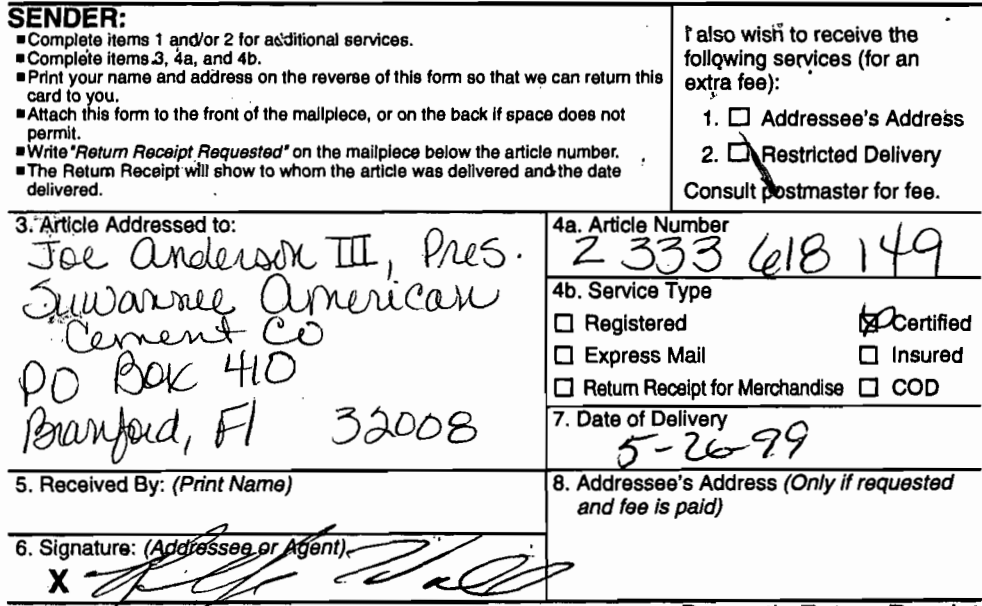 SENDER:
■Complete items 1 and/or 2 for additional services.
■Complete items 3, 4a, and 4b.
■Print your name and address on the reverse of this form so that we can return this
card to you.
■Attach this form to the front of the mailpiece, or on the back if space does not
permit.
■Write "Return Receipt Requested" on the mailpiece below the article number.
■The Return Receipt will show to whom the article was delivered and the date
delivered.
I also wish to receive the
following services (for an
extra fee):
1. ☐ Addressee's Address
2. ☐ Restricted Delivery
Consult postmaster for fee.
3. Article Addressed to:
Joe Anderson III, Pres.
Suwannee American
Cement Co
PO Box 410
Branford, Fl 32008
4a. Article Number
Z 333 618 149
4b. Service Type
☐ Registered ☒ Certified
☐ Express Mail ☐ Insured
☐ Return Receipt for Merchandise ☐ COD
7. Date of Delivery
5-26-99
5. Received By: (Print Name)
8. Addressee's Address (Only if requested
and fee is paid)
6. Signature: (Addressee or Agent)
X